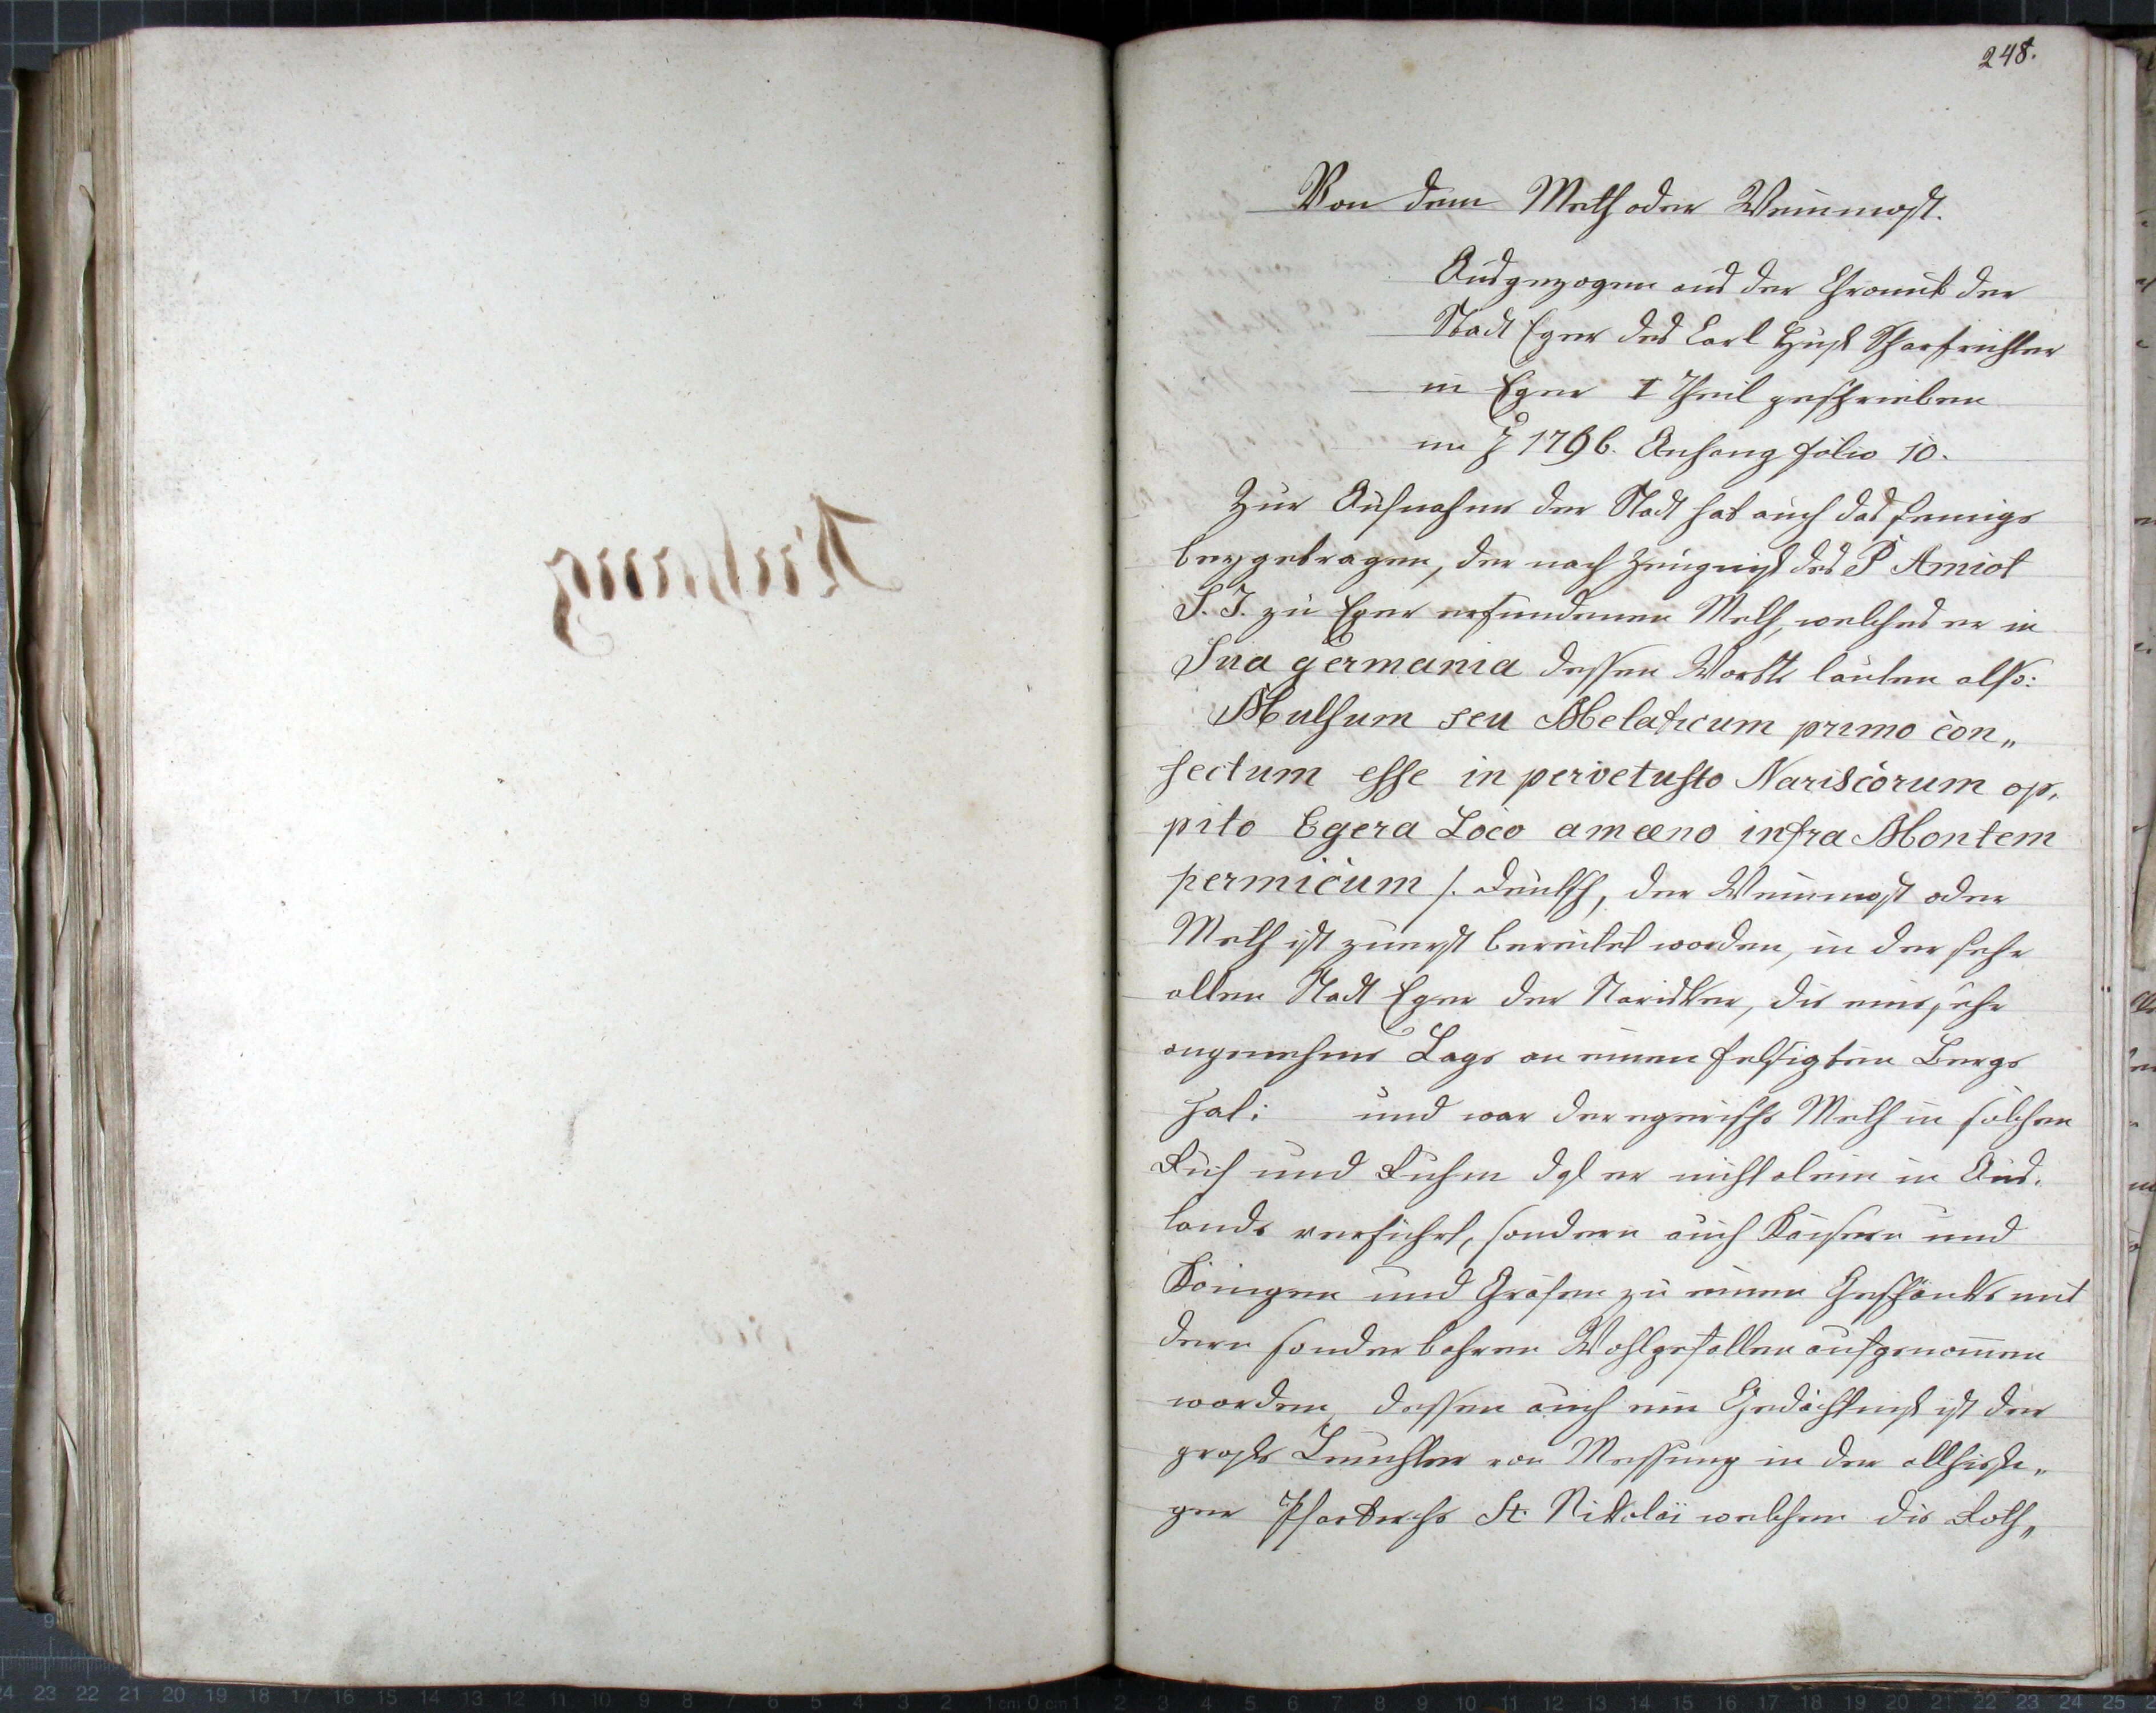 248.
Von dem Meth oder Weinmost.
Ausgezogen aus der Chronik der
Stadt Eger des Carl Huß Scharfrichter
in Eger I Theil geschrieben
im J 1796. Anhang folio 10.
Zur Aufnahme der Stadt hat auch das jennige
beygetragen, der nach Zeugniß des P Amiot
S. J. zu Eger erfundenen Meth, welches er in
Sua germania dessen Wortte lauten also:
Mulsum seu Melaticum primo con„
fectum esse in pervetusto Nariscorum op„
pito Egera Loco amæno infra Montem
permicum /. deutsch, der Weinmost oder
Meth ist zuerst bereitet worden, in der sehr
alten Stadt Eger der Narisker, die eine sehr
angenehme Lage an einen felsigten Berge
hat: und war der egerische Meth in solchen
Ruf und Ruhm dß er nicht alein in Aus„
lande verführt, sondern auch Kaisern und
Königen und Grafen zu einen Geschänke mit
dern sonderbahren Wohlgefallen aufgenom̅en
worden, dessen auch ein Gedächtniß ist der
große Leuchter von Messung in der allhiesi„
gen Pfarkirche St. Nikolai welchen die Roth„